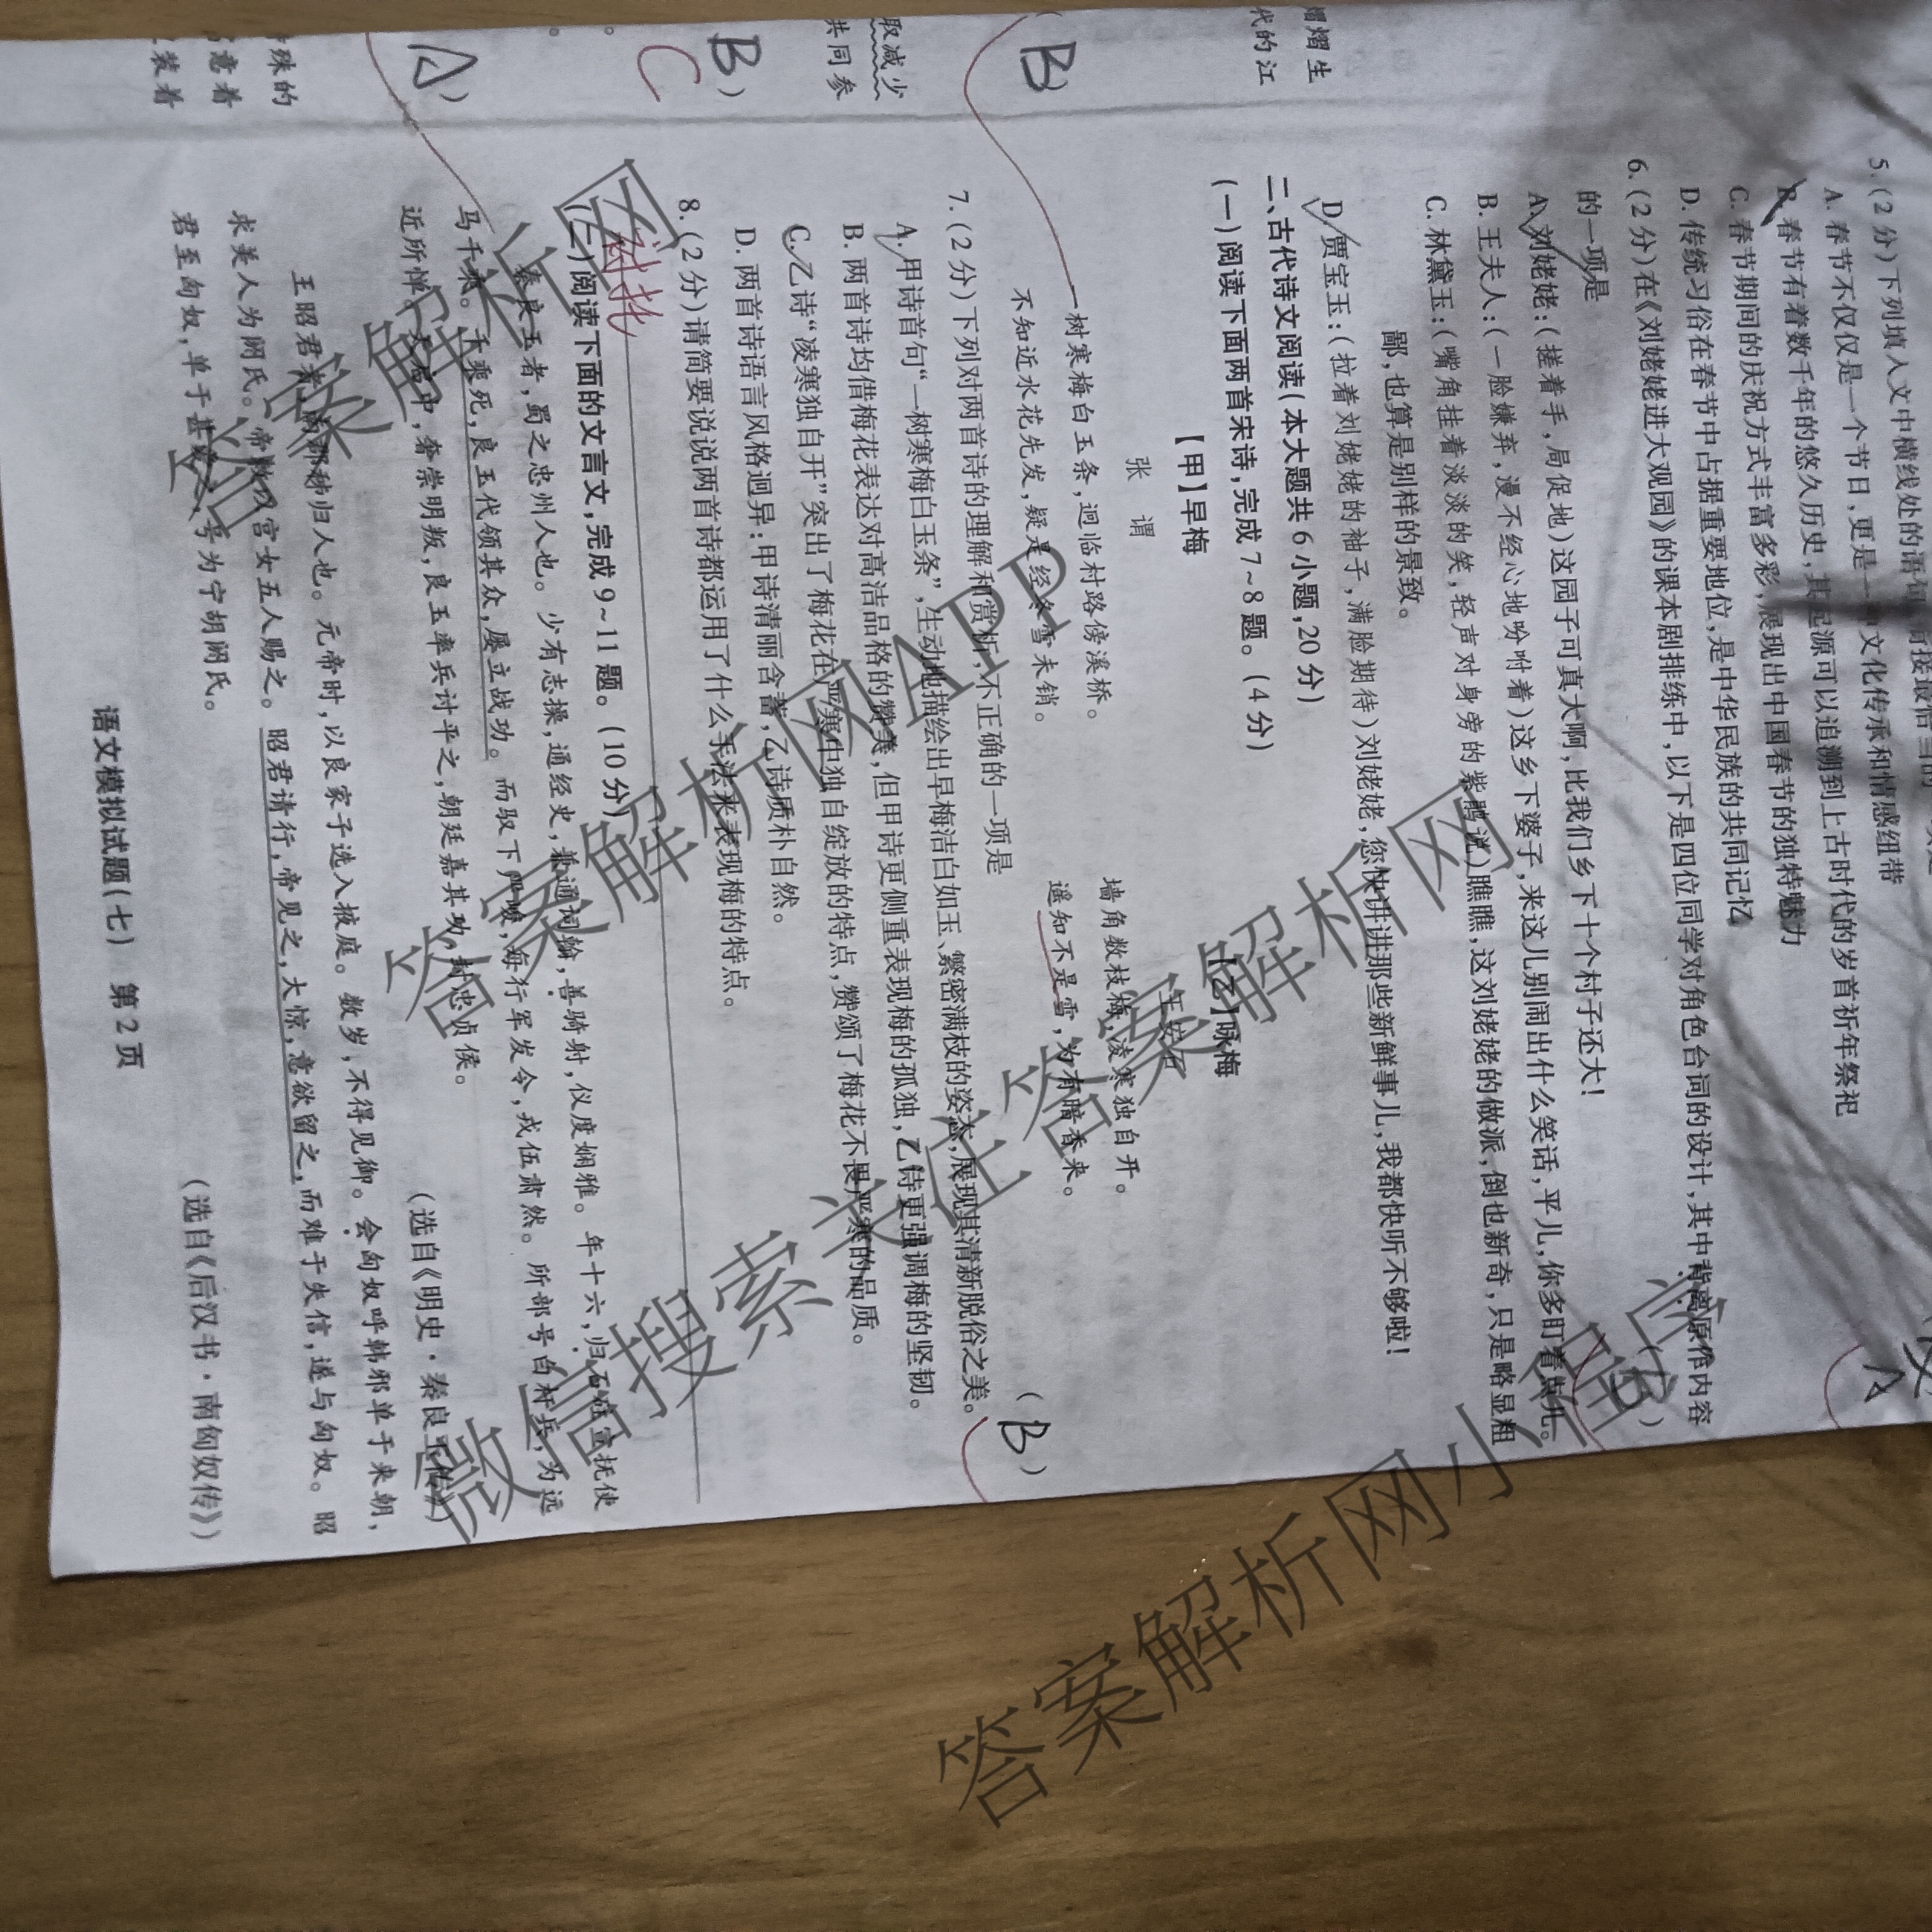 5.(2分)下列填入文中横线处的语句
A. 春节不仅仅是一个节日,更是一种文化传承和情感纽带
B. 春节有着数千年的悠久历史,其起源可以追溯到上古时代的岁首祈年祭祀
C. 春节期间的庆祝方式丰富多彩,展现出中国春节的独特魅力
D. 传统习俗在春节中占据重要地位,是中华民族的共同记忆
A
6.(2分)在《刘姥姥进大观园》的课本剧排练中,以下是四位同学对角色台词的设计,其中背离原作内容
的一项是
A. 刘姥姥:(搓着手,局促地)这园子可真大啊,比我们乡下十个村子还大!
B. 王夫人:(一脸嫌弃,漫不经心地吩咐着)这乡下婆子,来这儿别闹出什么笑话,平儿,你多盯着点儿。
C. 林黛玉:(嘴角挂着淡淡的笑,轻声对身旁的紫鹃说)瞧瞧,这刘姥姥的做派,倒也新奇,只是略显粗
鄙,也算是别样的景致。
D. 贾宝玉:(拉着刘姥姥的袖子,满脸期待)刘姥姥,您快讲讲那些新鲜事儿,我都快听不够啦!
二、古代诗文阅读(本大题共6小题,20分)
(一)阅读下面两首宋诗,完成7~8题。(4分)
【甲】早梅
张 谓
一树寒梅白玉条,迥临村路傍溪桥。
不知近水花先发,疑是经冬雪未销。
【乙】咏梅
王安石
墙角数枝梅,凌寒独自开。
遥知不是雪,为有暗香来。
7.(2分)下列对两首诗的理解和赏析,不正确的一项是
( B )
A. 甲诗首句“一树寒梅白玉条”,生动地描绘出早梅洁白如玉、繁密满枝的姿态,展现其清新脱俗之美。
B. 两首诗均借梅花表达对高洁品格的赞美,但甲诗更侧重表现梅的孤独,乙诗更强调梅的坚韧。
C. 乙诗“凌寒独自开”突出了梅花在严寒中独自绽放的特点,赞颂了梅花不畏严寒的品质。
D. 两首诗语言风格迥异:甲诗清丽含蓄,乙诗质朴自然。
8.(2分)请简要说说两首诗都运用了什么手法来表现梅的特点。
(二)阅读下面的文言文,完成9~11题。(10分)
秦良玉者,蜀之忠州人也。少有志操,通经史,兼通词翰,善骑射,仪度娴雅。年十六,归石砫宣抚使
马千乘。千乘死,良玉代领其众,屡立战功。而驭下严峻,每行军发令,戎伍肃然。所部号白杆兵,为远
近所惮。天启中,奢崇明叛,良玉率兵讨平之,朝廷嘉其功,封忠贞侯。
(选自《明史·秦良玉传》)
王昭君者,南郡秭归人也。元帝时,以良家子选入掖庭。数岁,不得见御。会匈奴呼韩邪单于来朝,
求美人为阏氏。帝敕以宫女五人赐之。昭君请行,帝见之,大惊,意欲留之,而难于失信,遂与匈奴。昭
君至匈奴,单于甚爱之,号为宁胡阏氏。
(选自《后汉书·南匈奴传》)
语文模拟试题(七) 第2页
熠熠生
代的江
B)
取减少
共同参
B)
C
A)
殊的
意着
装着
微信搜索关注答案解析网小程序
答案解析网APP
答案解析网
答案解析网
答案解析网